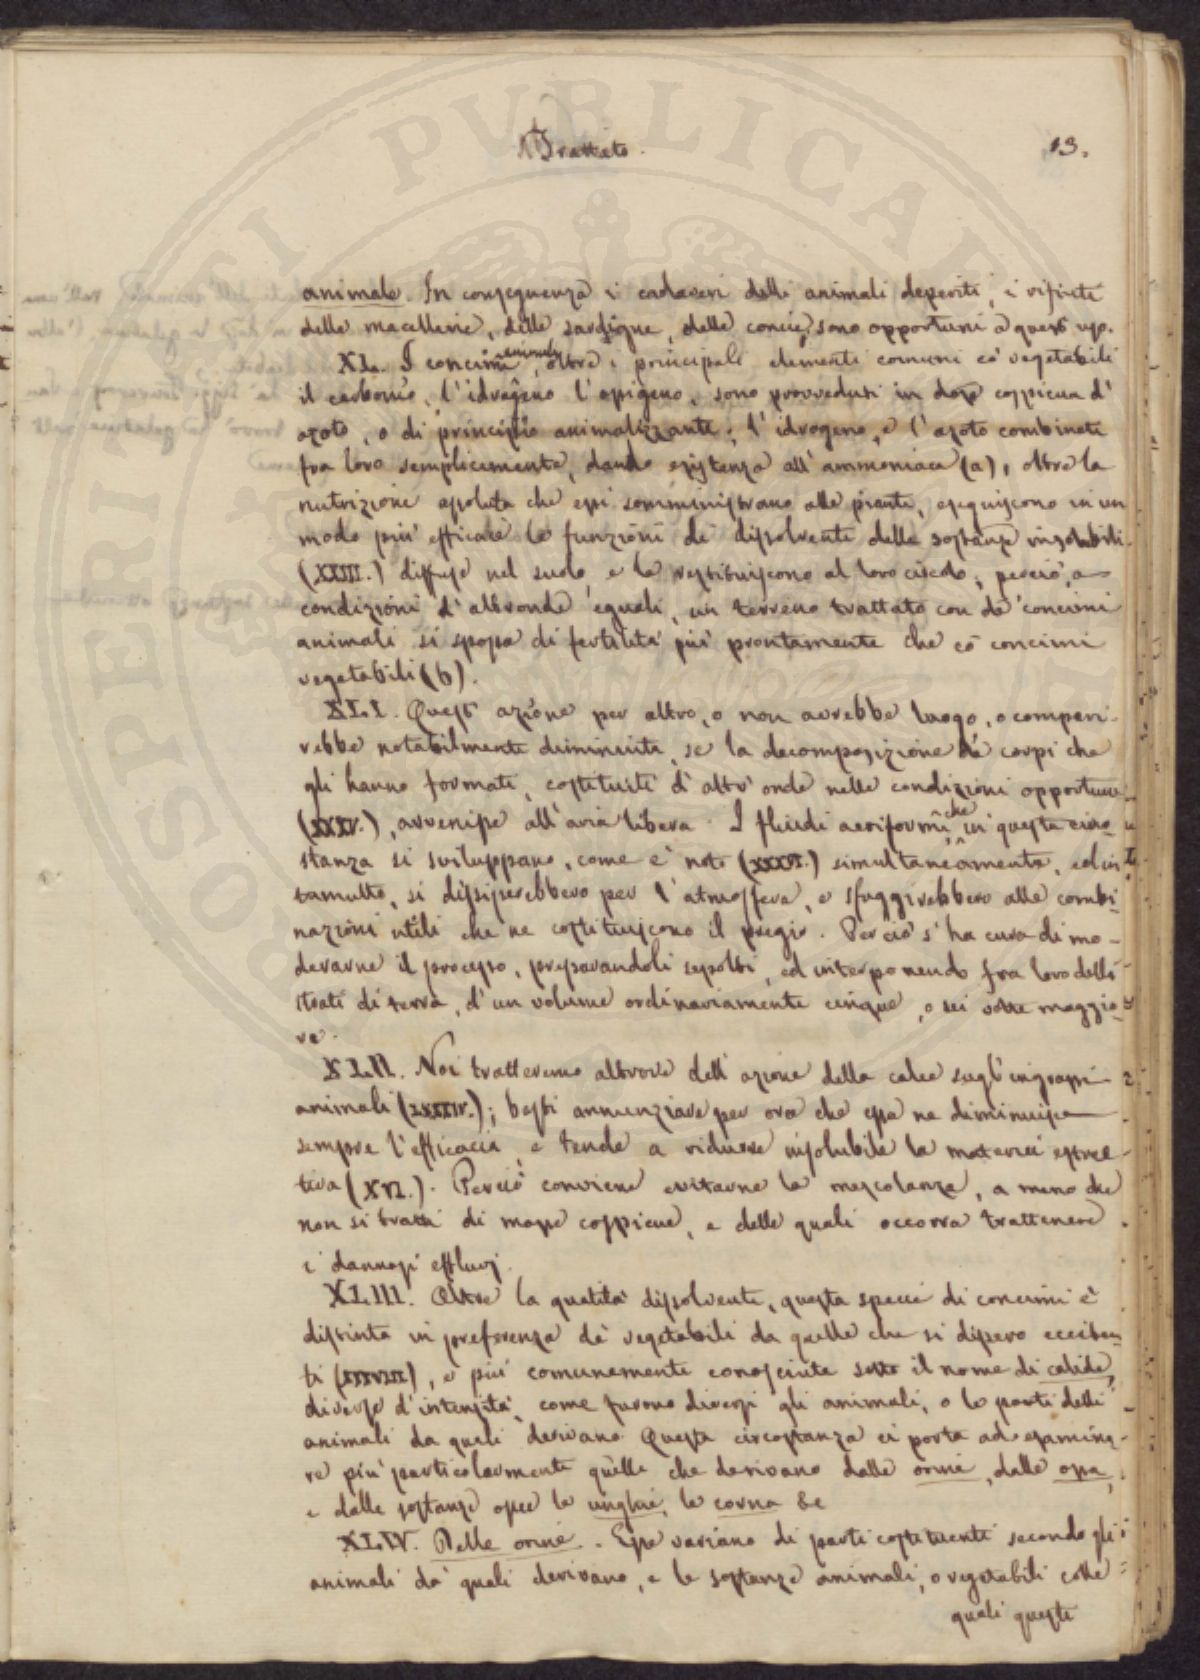 Trattato.
13.
animale. In conseguenza i cadaveri delli animali deperiti, i rifiuti
delle macellerie, delle sardigne, delle concie, sono opportuni a quest uso.
XL. I concimi animali, oltre i principali elementi comuni co' vegetabili
il carbonio, l'idrogeno l'ossigeno, sono provveduti in dose cospicua d'
azoto, o di principio animalizzante; l'idrogeno, e l'azoto combinati
fra loro semplicemente, danno esistenza all'ammoniaca (a), oltre la
nutrizione assoluta che essi somministrano alle piante, eseguiscono in un
modo più efficace le funzioni di dissolventi delle sostanze insolubili
(XXIII.) diffuse nel suolo e le restituiscono al loro circolo; perciò, a
condizioni d'altronde eguali, un terreno trattato con de' concimi
animali si spossa di fertilità più prontamente che co' concimi
vegetabili (b).
XLI. Quest' azione per altro, o non avrebbe luogo, o compari-
rebbe notabilmente diminuita, se la decomposizione de' corpi che
gli hanno formati, costituiti d'altr' onde nelle condizioni opportune
(XXXV.), avvenisse all'aria libera. I fluidi aeriformi, che in questa circo-
stanza si sviluppano, come è noto (XXXVI.) simultaneamente, ed in
tumulto, si dissiperebbero per l'atmosfera, e sfuggirebbero alle combi-
nazioni utili che ne costituiscono il pregio. Perciò s'ha cura di mo-
derarne il processo, preparandoli sepolti, ed interponendo fra loro delli
strati di terra, d'un volume ordinariamente cinque, o sei volte maggio-
re.
XLII. Noi tratteremo altrove dell'azione della calce sugl'ingrassi
animali (LXXXIV.); basti annunziare per ora che essa ne diminuisce
sempre l'efficacia, e tende a ridurre insolubile la materia estrat-
tiva (XVI.). Perciò conviene evitarne la mescolanza, a meno che
non si tratti di masse cospicue, e delle quali occorra trattenere
i dannosi effluvj.
XLIII. Oltre la qualità dissolvente, questa specie di concimi è
distinta in preferenza de' vegetabili da quelle che si dissero eccitan-
ti (XXXVIII), e più comunemente conosciute sotto il nome di calide,
diverse d'intensità, come furono diversi gli animali, o le parti delli
animali da quali derivano. Questa circostanza ci porta ad esamina-
re più particolarmente quelle che derivano dalle orine, dalle ossa,
e dalle sostanze ossee le unghie, le corna &c
XLIV. Delle orine. Esse variano di parti costituenti secondo gli
animali da' quali derivano, e le sostanze animali, o vegetabili colle
quali queste